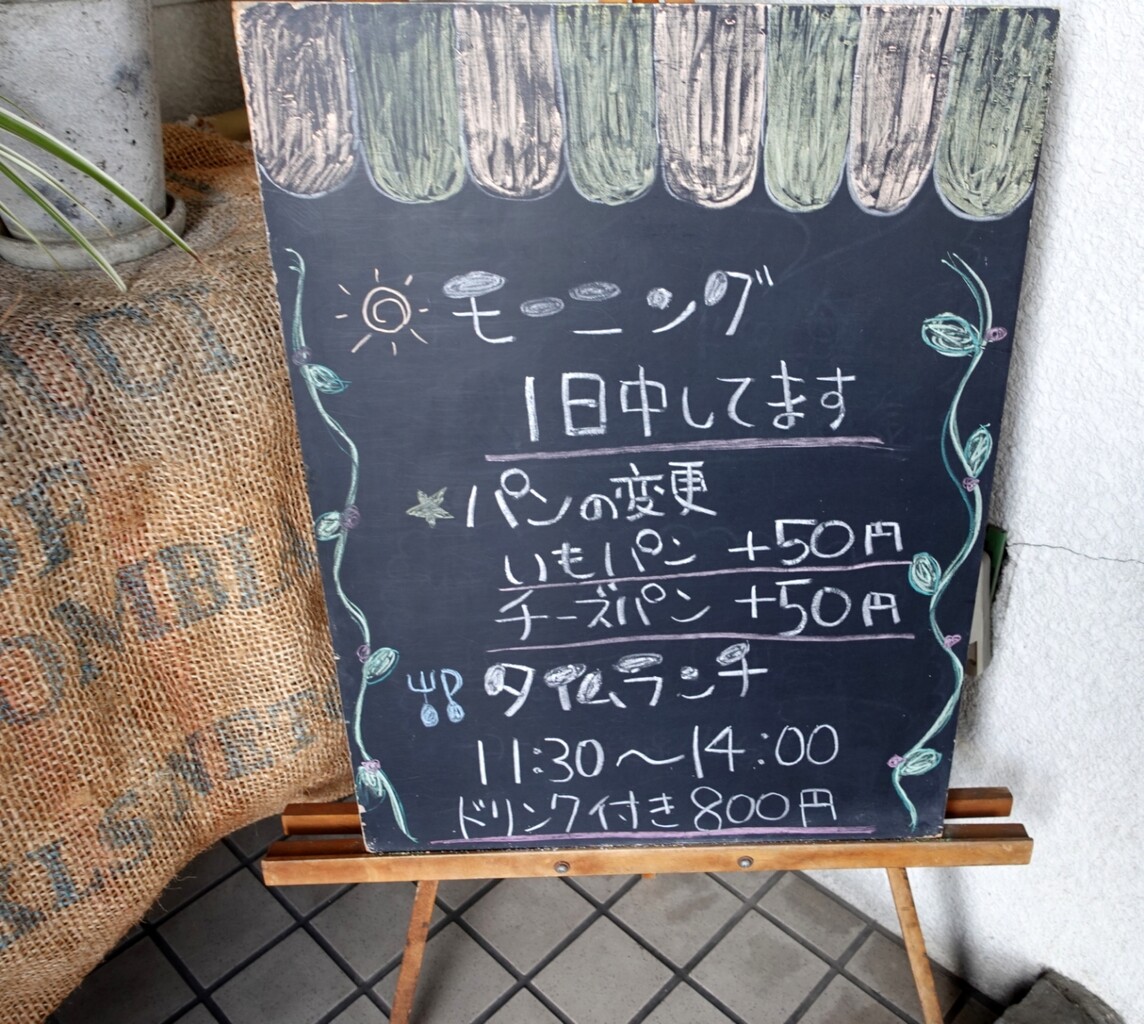 モーニング
1日中してます
パンの変更
いもパン +50円
チーズパン +50円
タイムランチ
11:30〜14:00
ドリンク付き800円